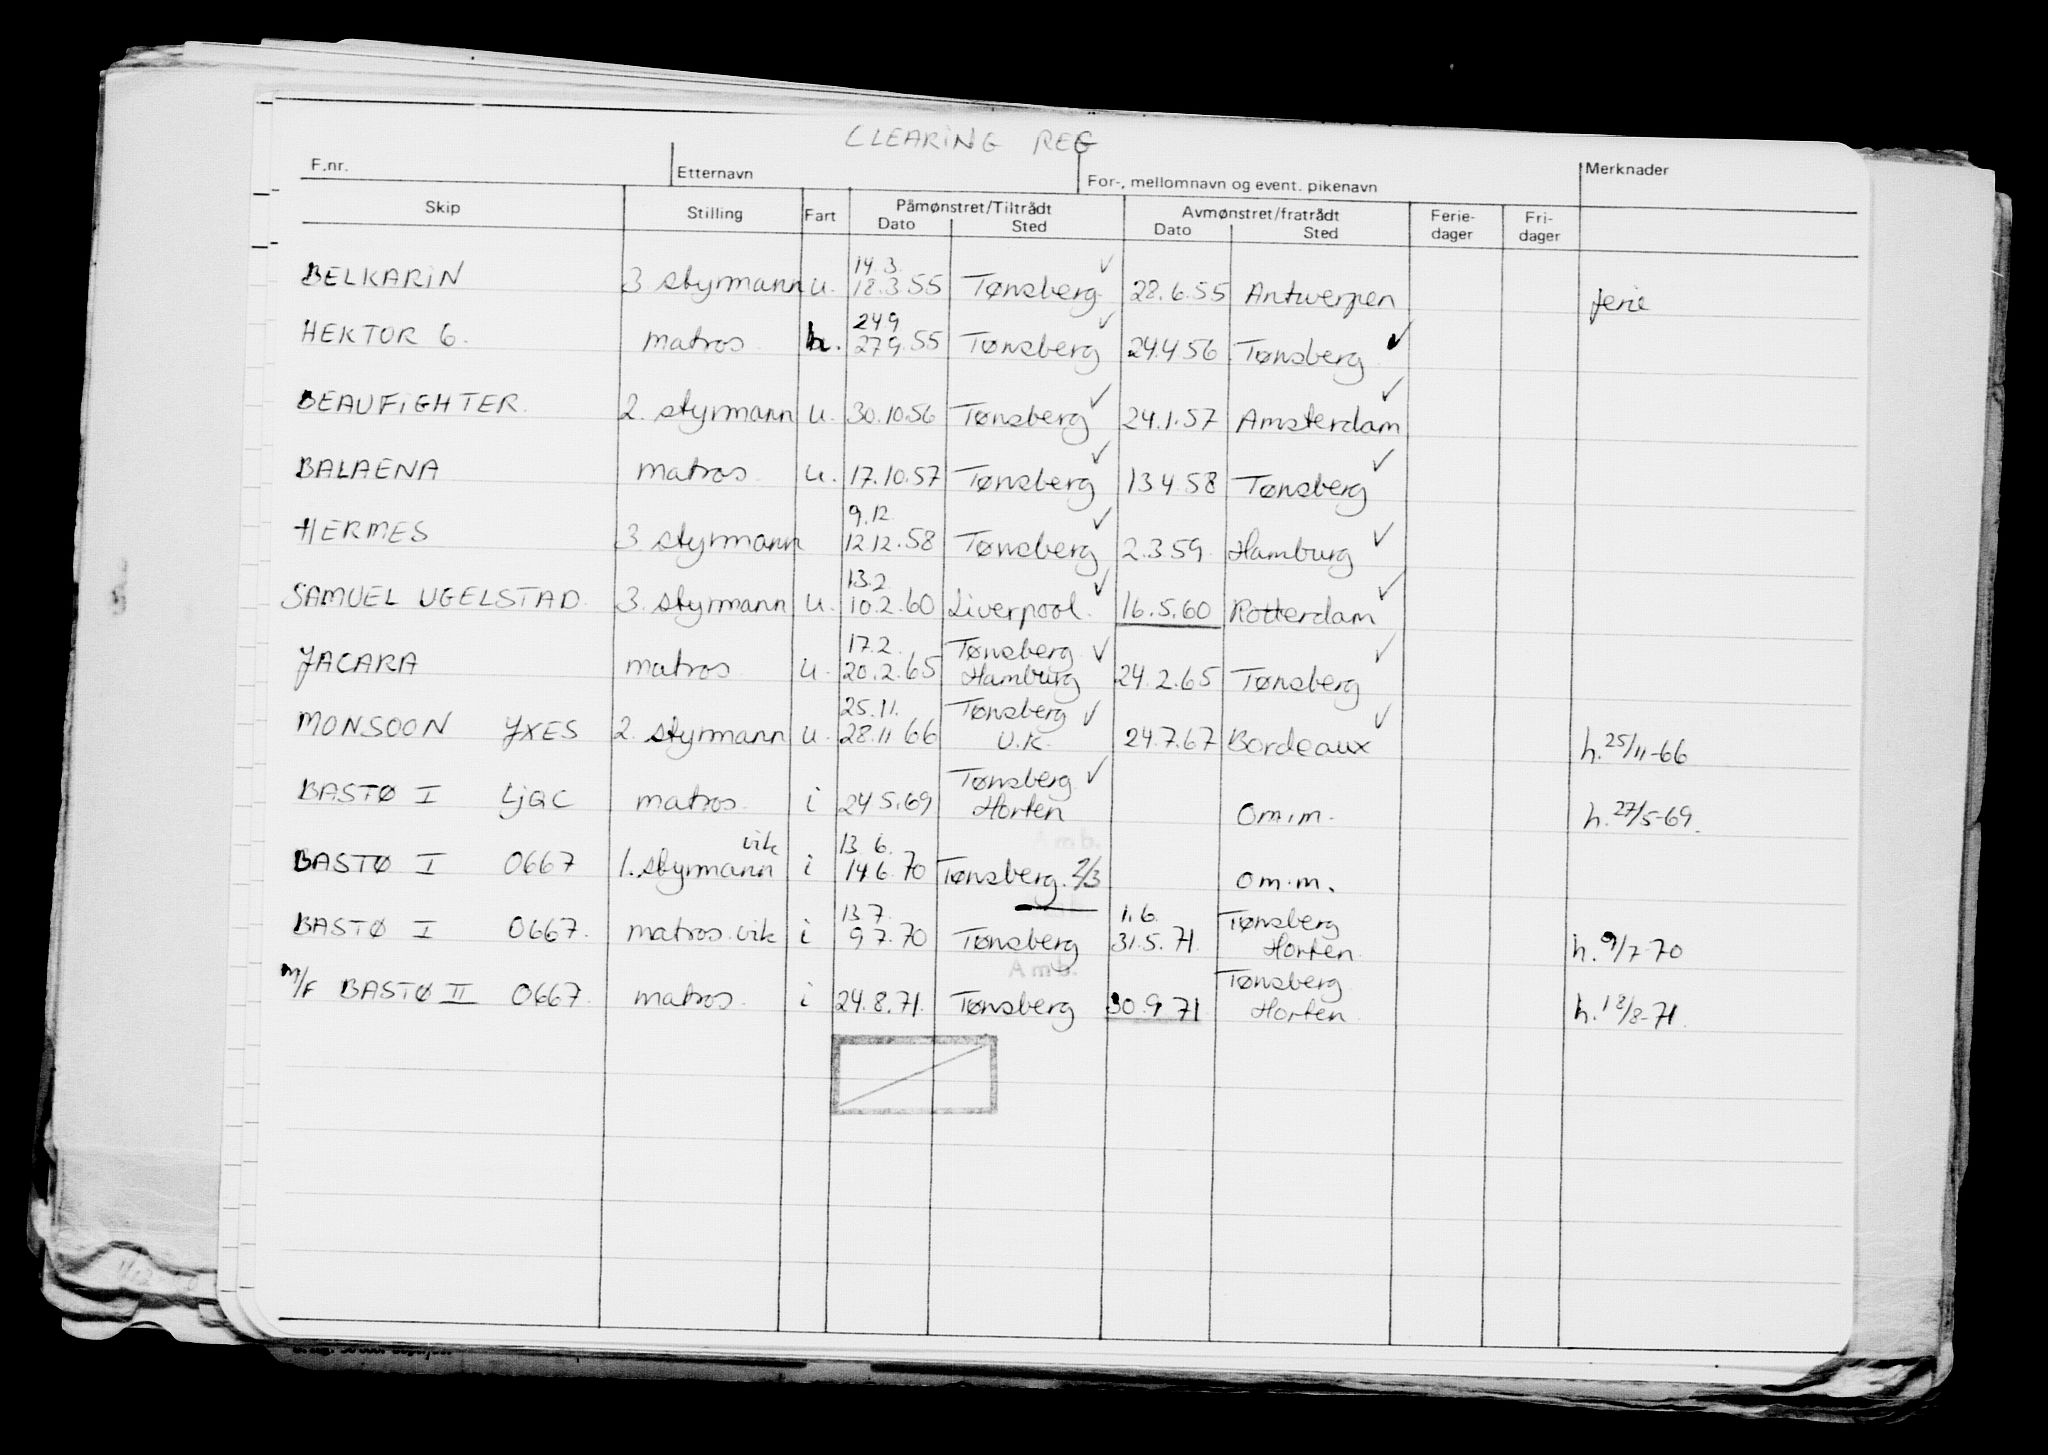 CLEARING REG
F.nr. Etternavn For-, mellomnavn og event. pikenavn Merknader
Skip Stilling Fart Påmønstret/Tiltrådt Avmønstret/fratrådt Ferie- Fri-
Dato Sted Dato Sted dager dager
14.3.
BELKARIN 3 styrmann u. 18.3.55 Tønsberg ✓ 28.6.55 Antwerpen ferie
24.9
HEKTOR 6. matros h. 27.9.55 Tønsberg ✓ 24.4.56 Tønsberg ✓
BEAUFIGHTER. 2. styrmann u. 30.10.56 Tønsberg ✓ 24.1.57 Amsterdam ✓
BALAENA matros u. 17.10.57 Tønsberg ✓ 13.4.58 Tønsberg ✓
9.12
HERMES 3 styrmann 12.12.58 Tønsberg ✓ 2.3.59. Hamburg ✓
13.2
SAMUEL UGELSTAD. 3. styrmann u. 10.2.60 Liverpool. ✓ 16.5.60 Rotterdam ✓
17.2. Tønsberg ✓
JACARA matros u. 20.2.65 Hamburg 24.2.65 Tønsberg ✓
25.11. Tønsberg ✓
MONSOON JXES 2. styrmann u. 28.11 66 U.K. 24.7.67 Bordeaux ✓ h. 25/11-66
Tønsberg ✓
BASTØ I LJQC matros i 24 5.69 Horten om.m. h. 27/5-69.
vik 13 6. Amb.
BASTØ I 0667 1. styrmann i 14 6.70 Tønsberg. 2/3 om.m.
13 7. 1.6. Tønsberg
BASTØ I 0667. matros vik i 9 7.70 Tønsberg 31.5.71. Horten. h. 9/7-70
Amb. Tønsberg
m/f BASTØ II 0667. matros. i 24.8.71. Tønsberg 30.9.71 Horten. h. 18/8-71.